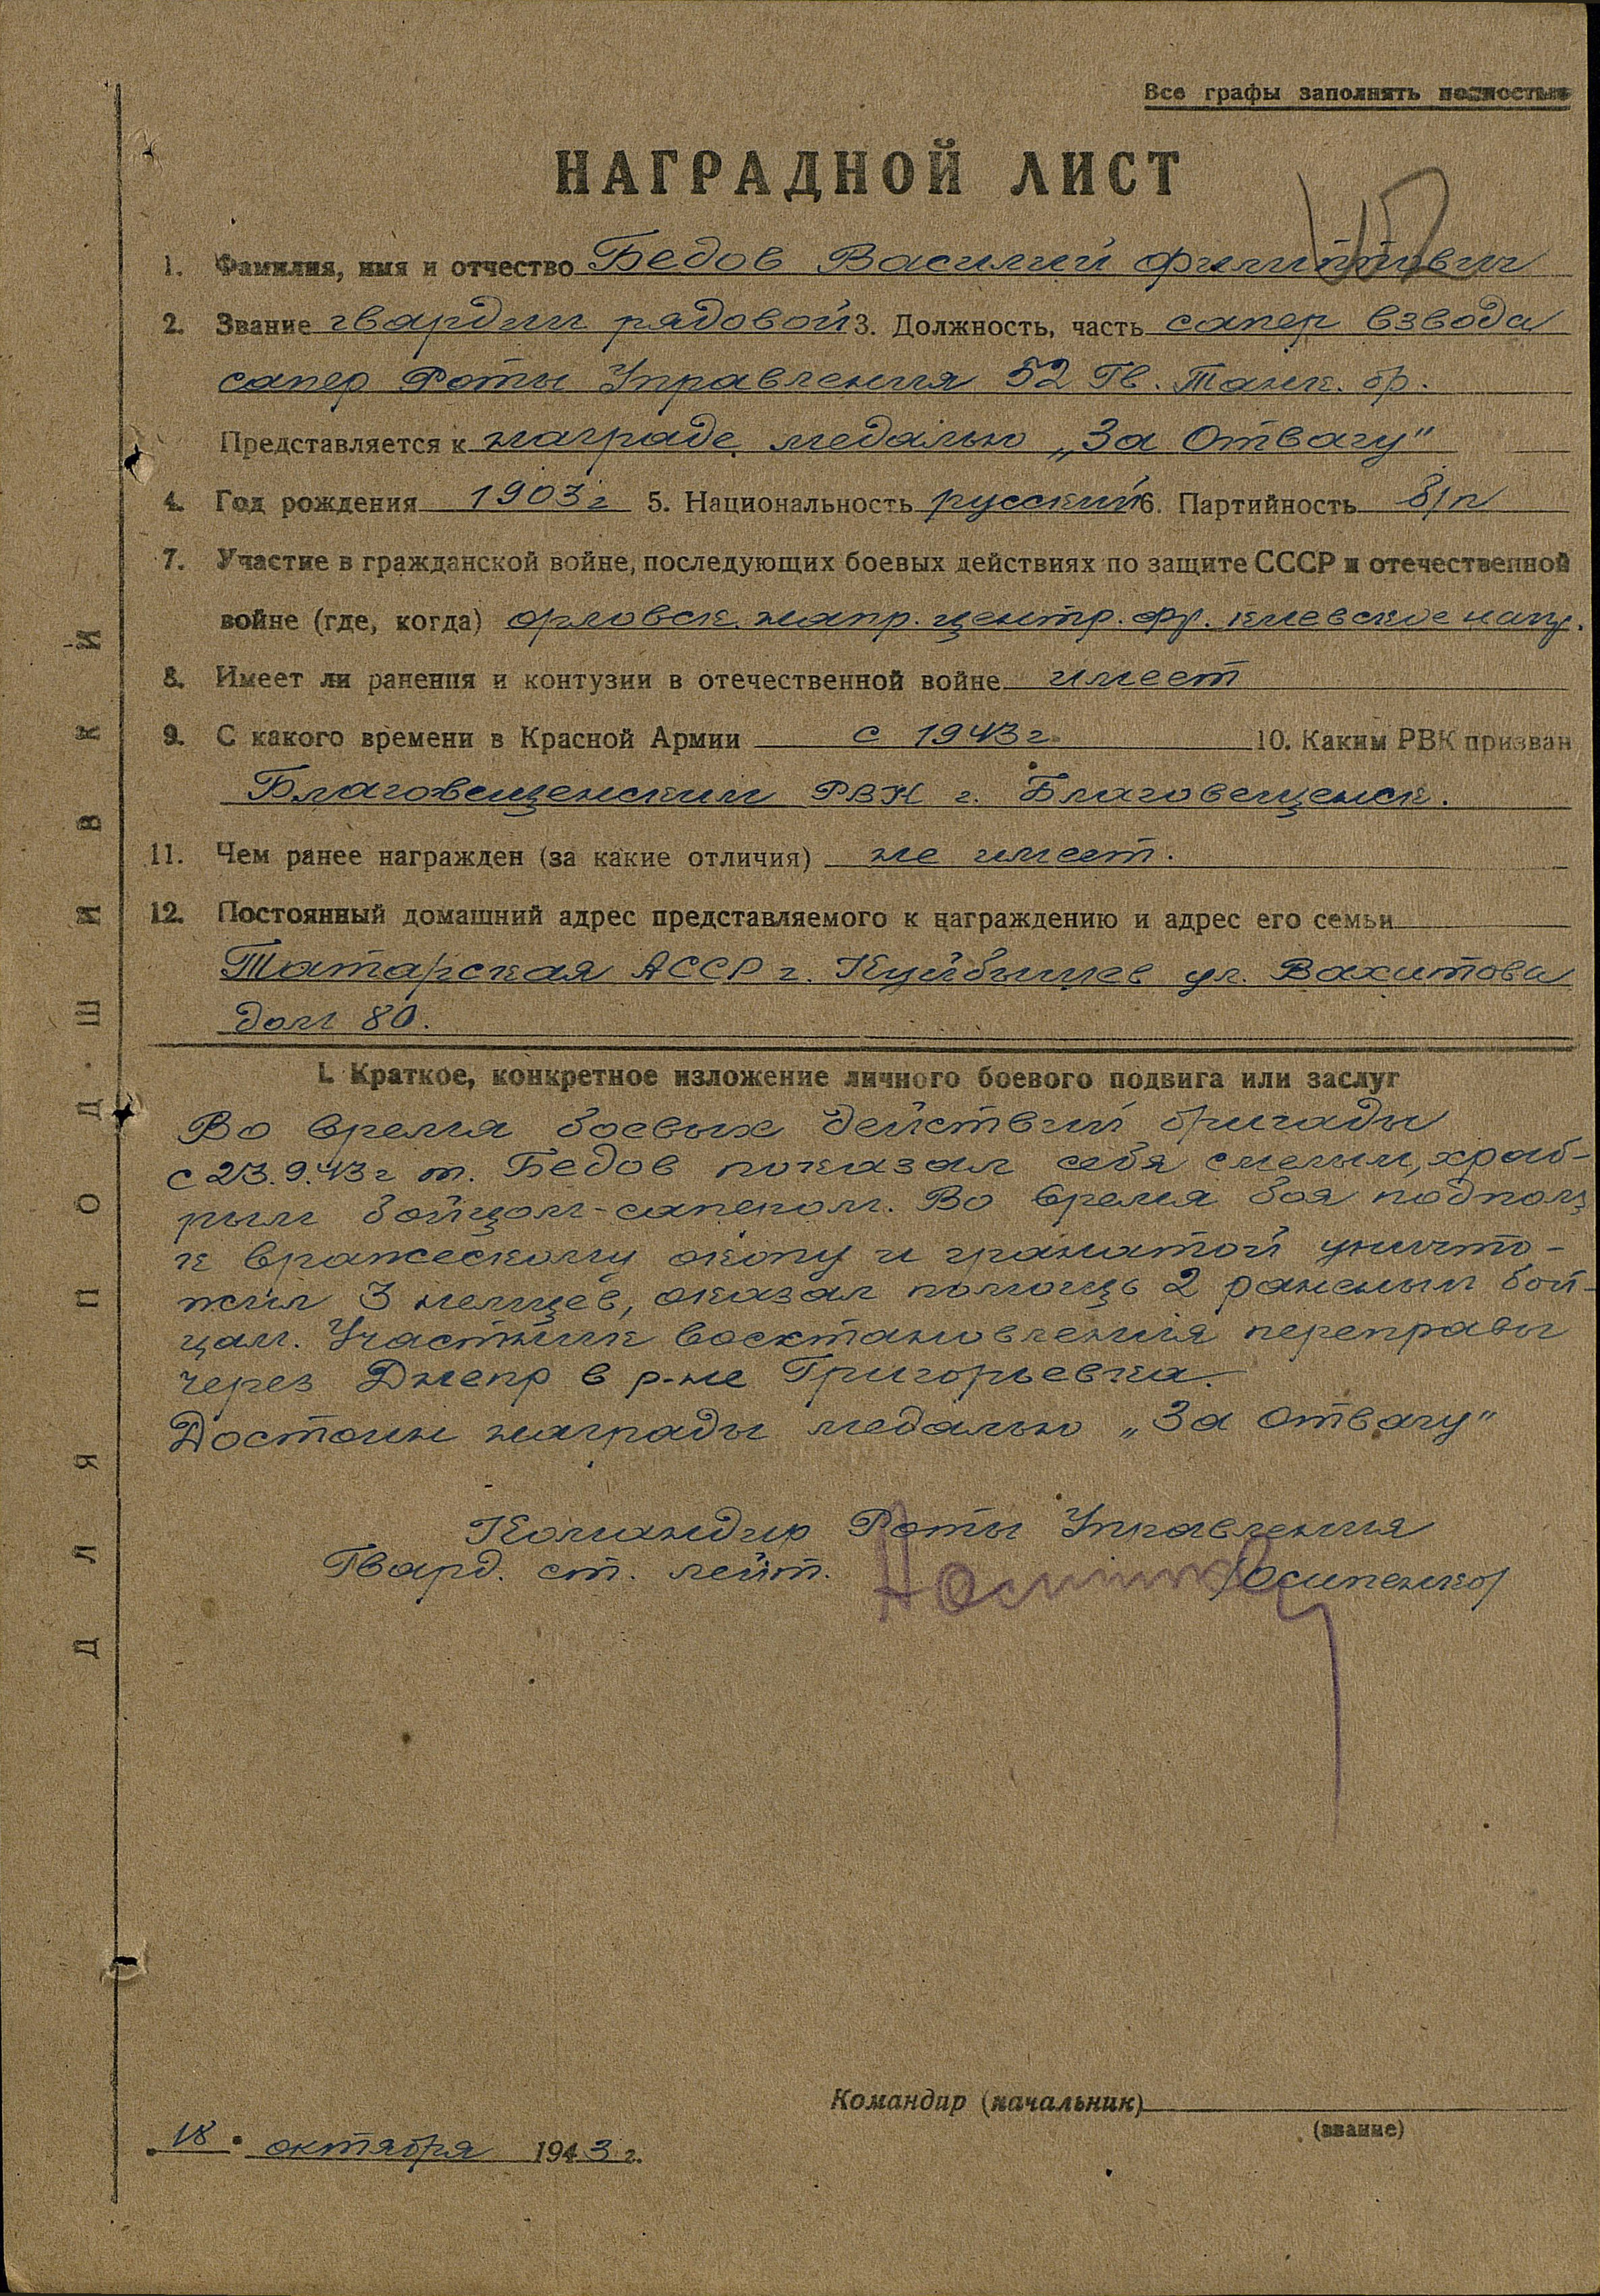 Все графы заполнять полностью
НАГРАДНОЙ ЛИСТ
1. Фамилия, имя и отчество Бедов Василий Филиппович
2. Звание гвардии рядовой 3. Должность, часть сапер взвода
сапер Роты Управления 52 Гв. Танк. бр.
Представляется к награде медалью „За Отвагу"
4. Год рождения 1903 г 5. Национальность русский 6. Партийность б/п
7. Участие в гражданской войне, последующих боевых действиях по защите СССР и отечественной
войне (где, когда) орловск. напр. центр. фр. киевское напр.
8. Имеет ли ранения и контузии в отечественной войне имеет
9. С какого времени в Красной Армии с 1943 г. 10. Каким РВК призван
Благовещенским РВК г. Благовещенск.
11. Чем ранее награжден (за какие отличия) не имеет.
12. Постоянный домашний адрес представляемого к награждению и адрес его семьи
Татарская АССР г. Куйбышев ул. Вахитова
дом 80.
I. Краткое, конкретное изложение личного боевого подвига или заслуг
Во время боевых действий бригады
с 23.9.43 г т. Бедов показал себя смелым, храб-
рым бойцом-сапером. Во время боя подполз
к вражескому окопу и гранатой уничто-
жил 3 немцев, оказал помощь 2 раненым бой-
цам. Участник восстановления переправы
через Днепр в р-не Григорьевка.
Достоин награды медалью „За Отвагу"
Командир Роты Управления
Гвард. ст. лейт. /Осипенко/
Командир (начальник)
(звание)
18 октября 1943 г.
ДЛЯ ПОДШИВКИ